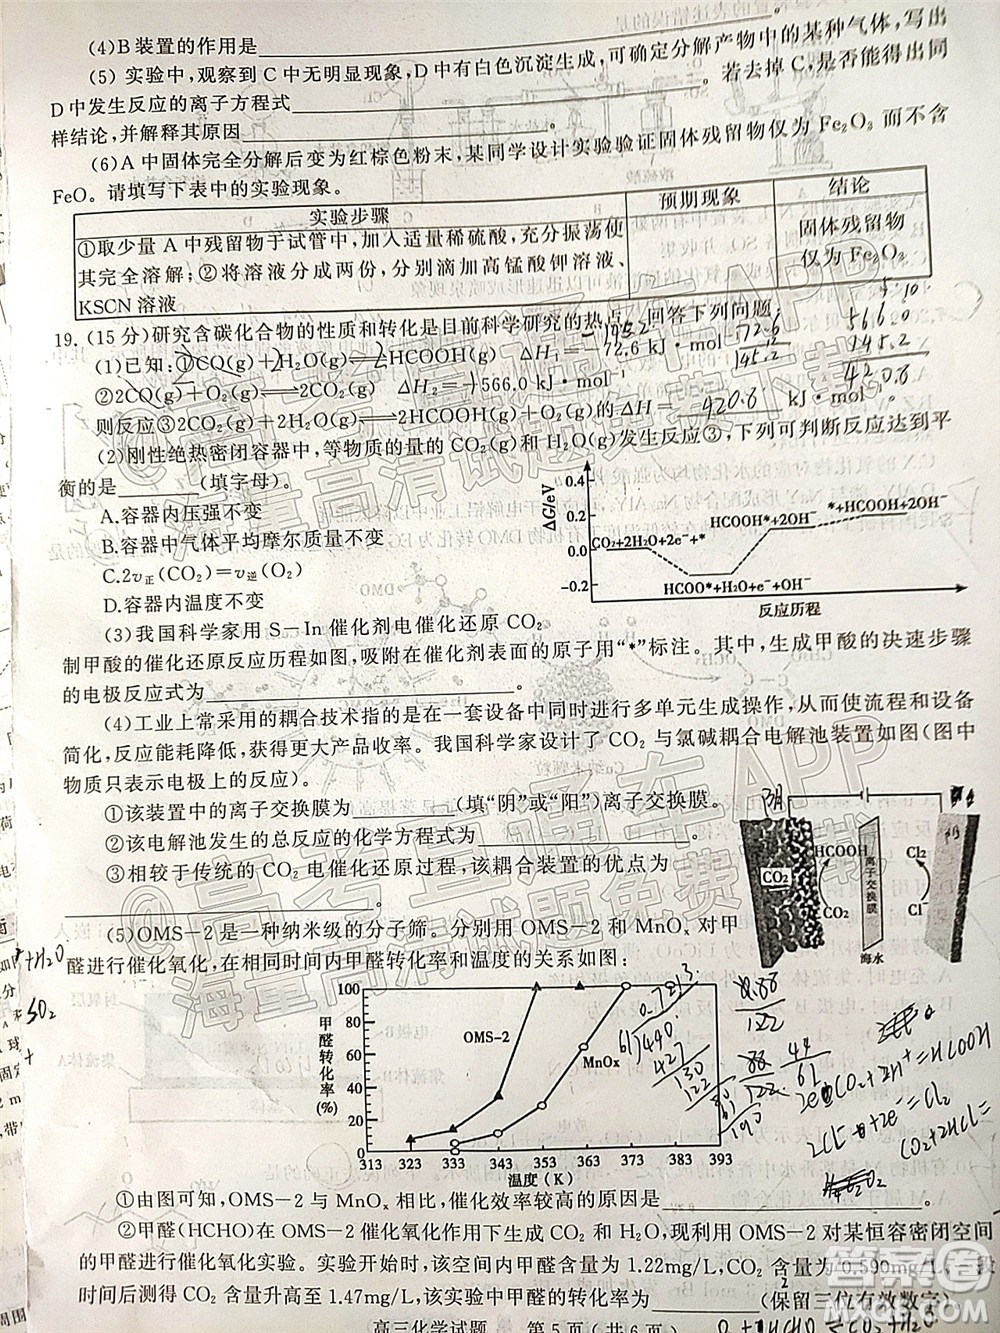 (4)B装置的作用是____________________。
(5)实验中,观察到C中无明显现象,D中有白色沉淀生成,可确定分解产物中的某种气体,写出
D中发生反应的离子方程式____________________。若去掉C,是否能得出同
样结论,并解释其原因____________________。
(6)A中固体完全分解后变为红棕色粉末,某同学设计实验验证固体残留物仅为Fe₂O₃而不含
FeO。请填写下表中的实验现象。
实验步骤 预期现象 结论
①取少量A中残留物于试管中,加入适量稀硫酸,充分振荡使
其完全溶解;②将溶液分成两份,分别滴加高锰酸钾溶液、
KSCN溶液
固体残留物
仅为Fe₂O₃
19.(15分)研究含碳化合物的性质和转化是目前科学研究的热点。回答下列问题
(1)已知:①CO₂(g)+H₂O(g)⇌HCOOH(g) ΔH₁=-72.6 kJ·mol⁻¹
②2CO(g)+O₂(g)⇌2CO₂(g) ΔH₂=-566.0 kJ·mol⁻¹
则反应③2CO₂(g)+2H₂O(g)⇌2HCOOH(g)+O₂(g)的ΔH=420.8 kJ·mol⁻¹。
-72.6
145.2
566.0
145.2
420.8
(2)刚性绝热密闭容器中,等物质的量的CO₂(g)和H₂O(g)发生反应③,下列可判断反应达到平
衡的是______(填字母)。
A.容器内压强不变
B.容器中气体平均摩尔质量不变
C.2v正(CO₂)=v逆(O₂)
D.容器内温度不变
ΔG/eV
0.4
0.2
0.0
-0.2
CO₂+2H₂O+2e⁻+*
HCOO*+H₂O+e⁻+OH⁻
HCOOH*+2OH⁻
*+HCOOH+2OH⁻
反应历程
(3)我国科学家用S-In催化剂电催化还原CO₂
制甲酸的催化还原反应历程如图,吸附在催化剂表面的原子用“*”标注。其中,生成甲酸的决速步骤
的电极反应式为____________________。
(4)工业上常采用的耦合技术指的是在一套设备中同时进行多单元生成操作,从而使流程和设备
简化,反应能耗降低,获得更大产品收率。我国科学家设计了CO₂与氯碱耦合电解池装置如图(图中
物质只表示电极上的反应)。
①该装置中的离子交换膜为______(填“阴”或“阳”)离子交换膜。
②该电解池发生的总反应的化学方程式为______________。
③相较于传统的CO₂电催化还原过程,该耦合装置的优点为
____________________。
阴
CO₂
HCOOH
CO₂
离子交换膜
海水
Cl₂
Cl⁻
(5)OMS-2是一种纳米级的分子筛。分别用OMS-2和MnOₓ对甲
醛进行催化氧化,在相同时间内甲醛转化率和温度的关系如图:
甲醛转化率(%)
100
80
60
40
20
0
OMS-2
MnOₓ
313 323 333 343 353 363 373 383 393
温度(K)
2e⁻+CO₂+2H⁺=HCOOH
2Cl⁻-2e⁻=Cl₂
CO₂+2HCl=
①由图可知,OMS-2与MnOₓ相比,催化效率较高的原因是____________________。
②甲醛(HCHO)在OMS-2催化氧化作用下生成CO₂和H₂O,现利用OMS-2对某恒容密闭空间
的甲醛进行催化氧化实验。实验开始时,该空间内甲醛含量为1.22mg/L,CO₂含量为0.590mg/L,一段
时间后测得CO₂含量升高至1.47mg/L,该实验中甲醛的转化率为________(保留三位有效数字)。
高三化学试题 第5页(共6页)
答案圈
MXQE.COM